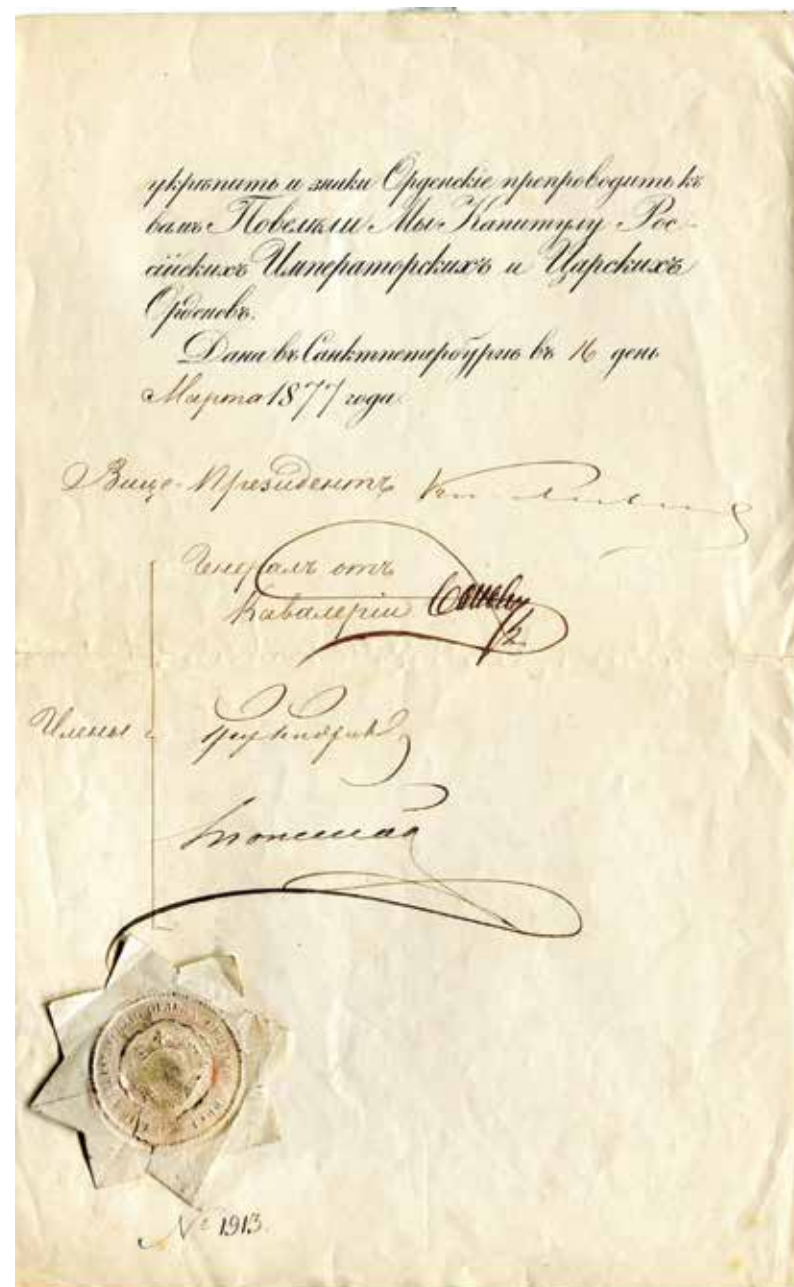 укрѣпить и знаки Орденскіе препроводить къ
вамъ Повелѣли Мы Капитулу Рос-
сійскихъ Императорскихъ и Царскихъ
Орденовъ.
Дана въ Санктпетербургѣ въ 16 день
Марта 1877 года.
Вице-Президентъ
Генералъ отъ
Кавалеріи
Члены:
№ 1913.